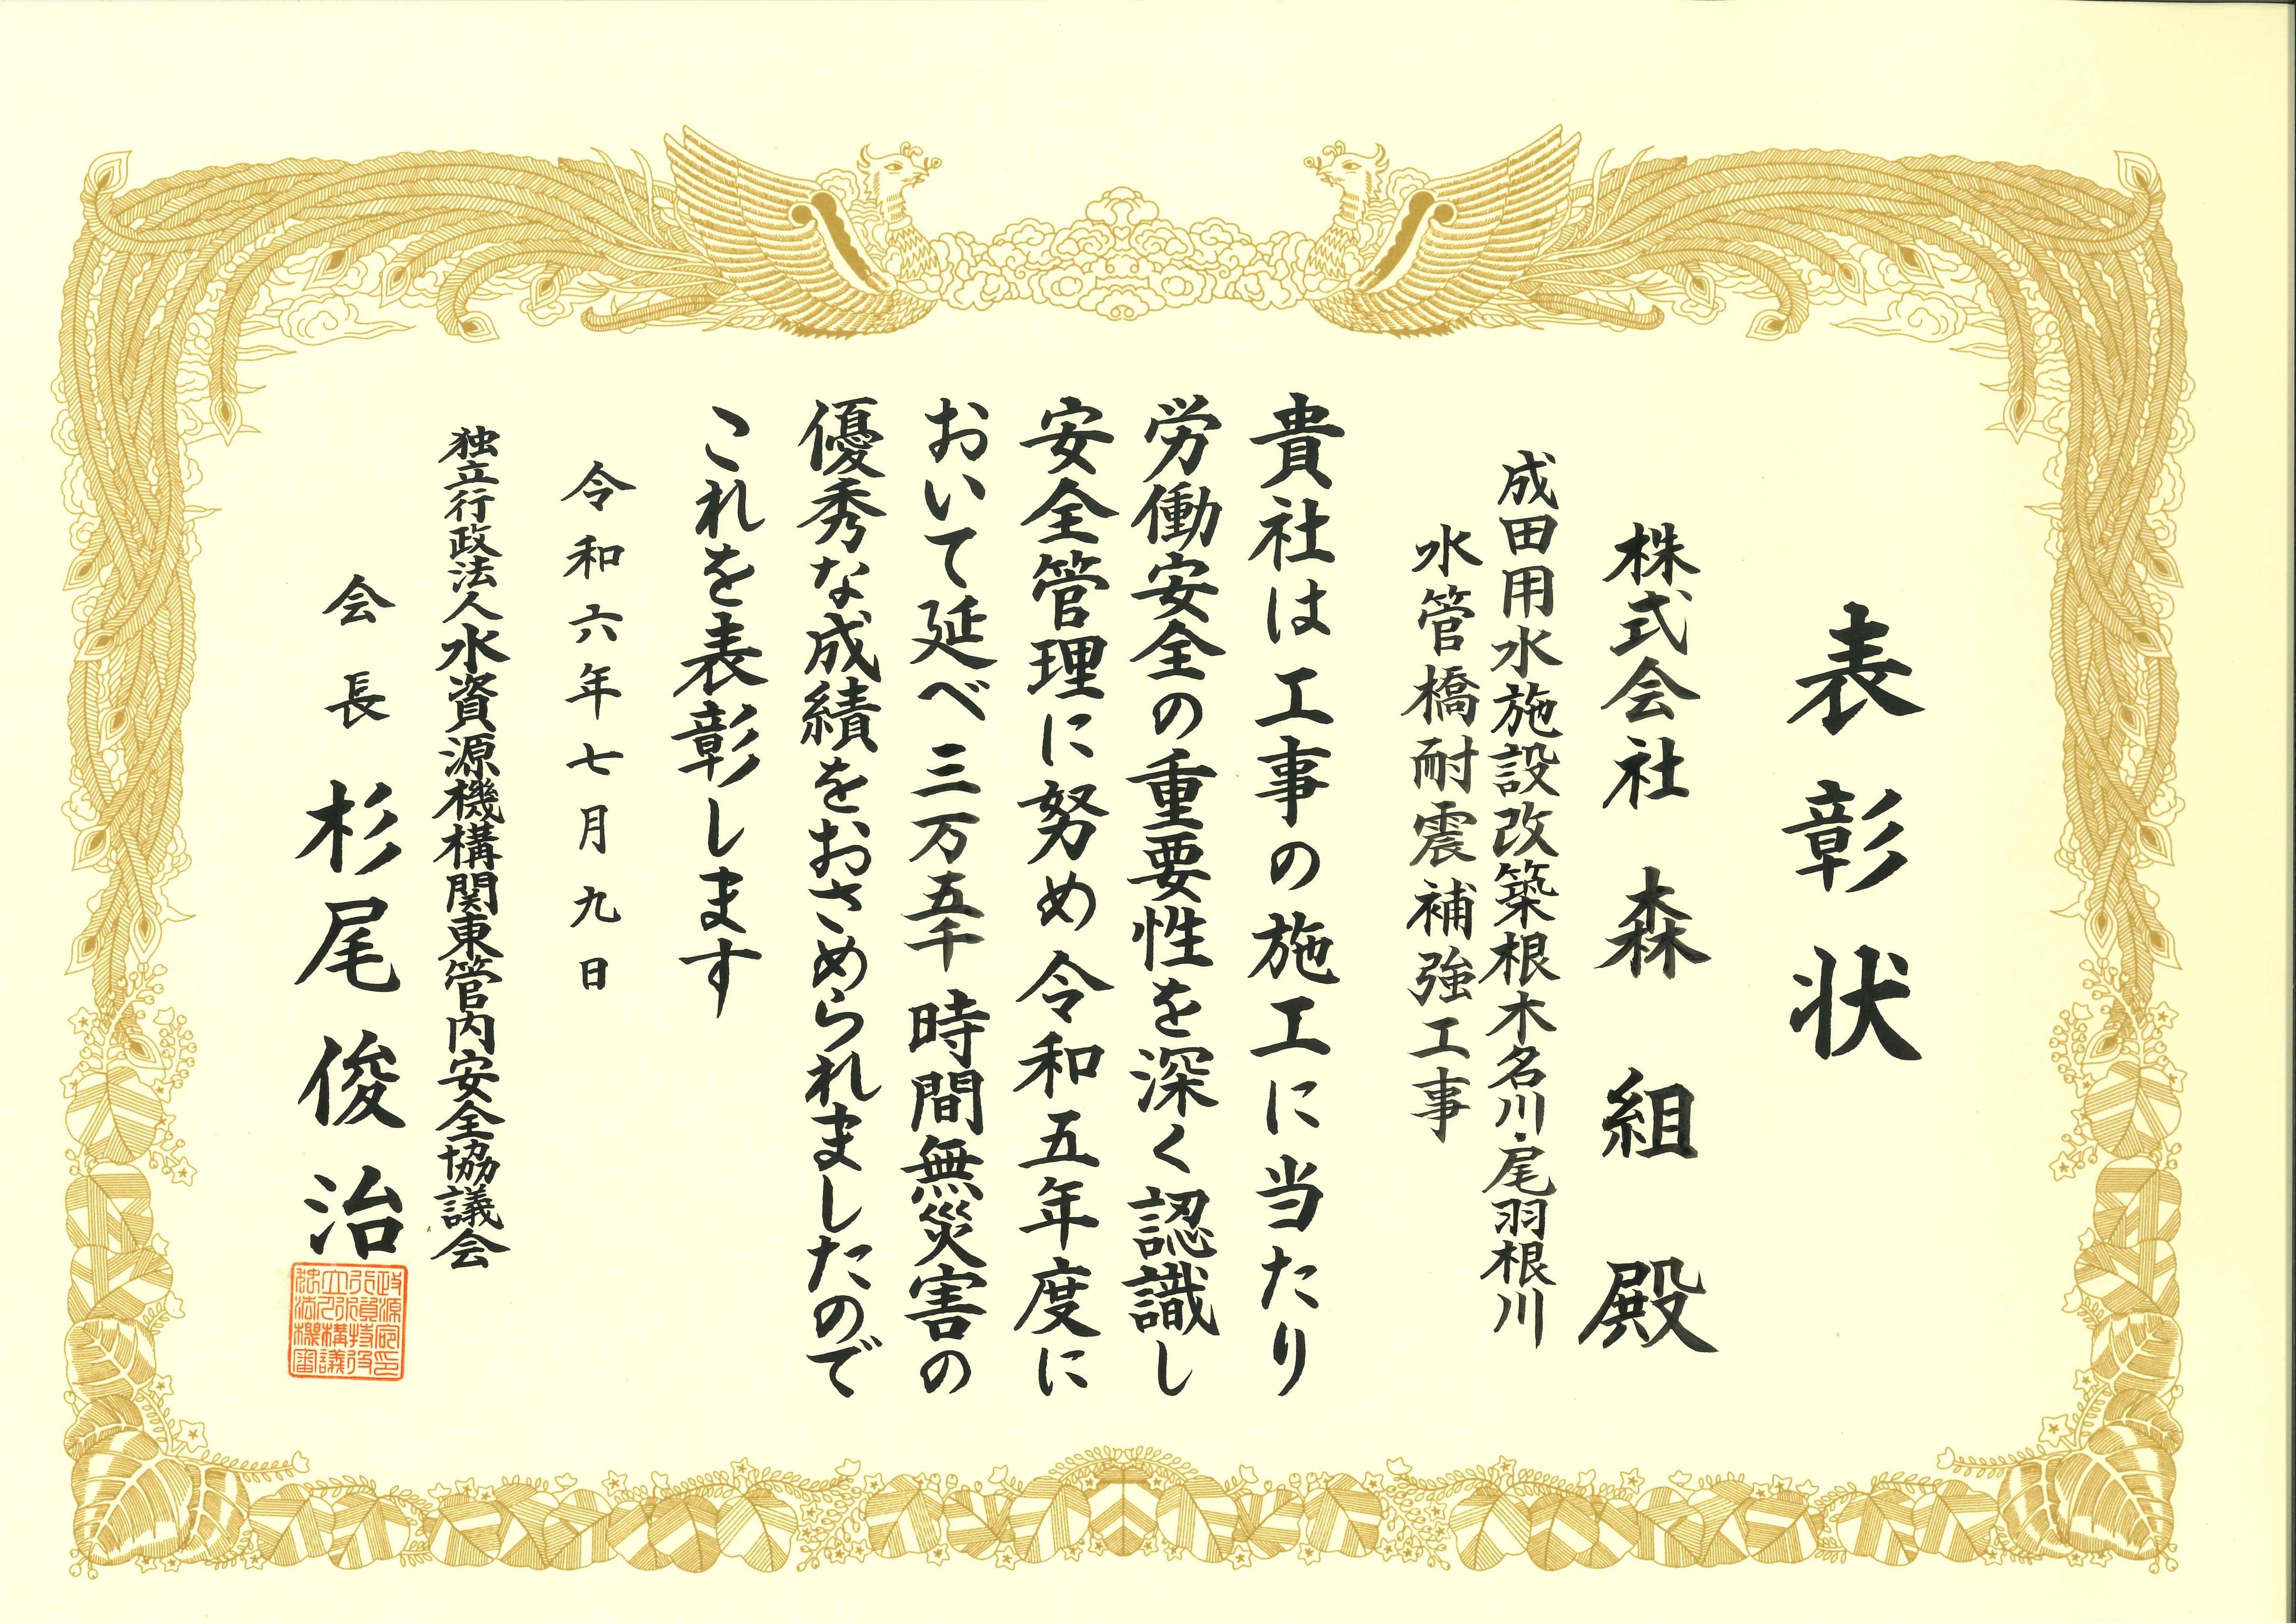 表彰状
株式会社 森組 殿
成田用水施設改築根木名川・尾羽根川
水管橋耐震補強工事
貴社は工事の施工に当たり
労働安全の重要性を深く認識し
安全管理に努め令和五年度に
おいて延べ三万五千時間無災害の
優秀な成績をおさめられましたので
これを表彰します
令和六年七月九日
独立行政法人水資源機構関東管内安全協議会
会長 杉尾俊治